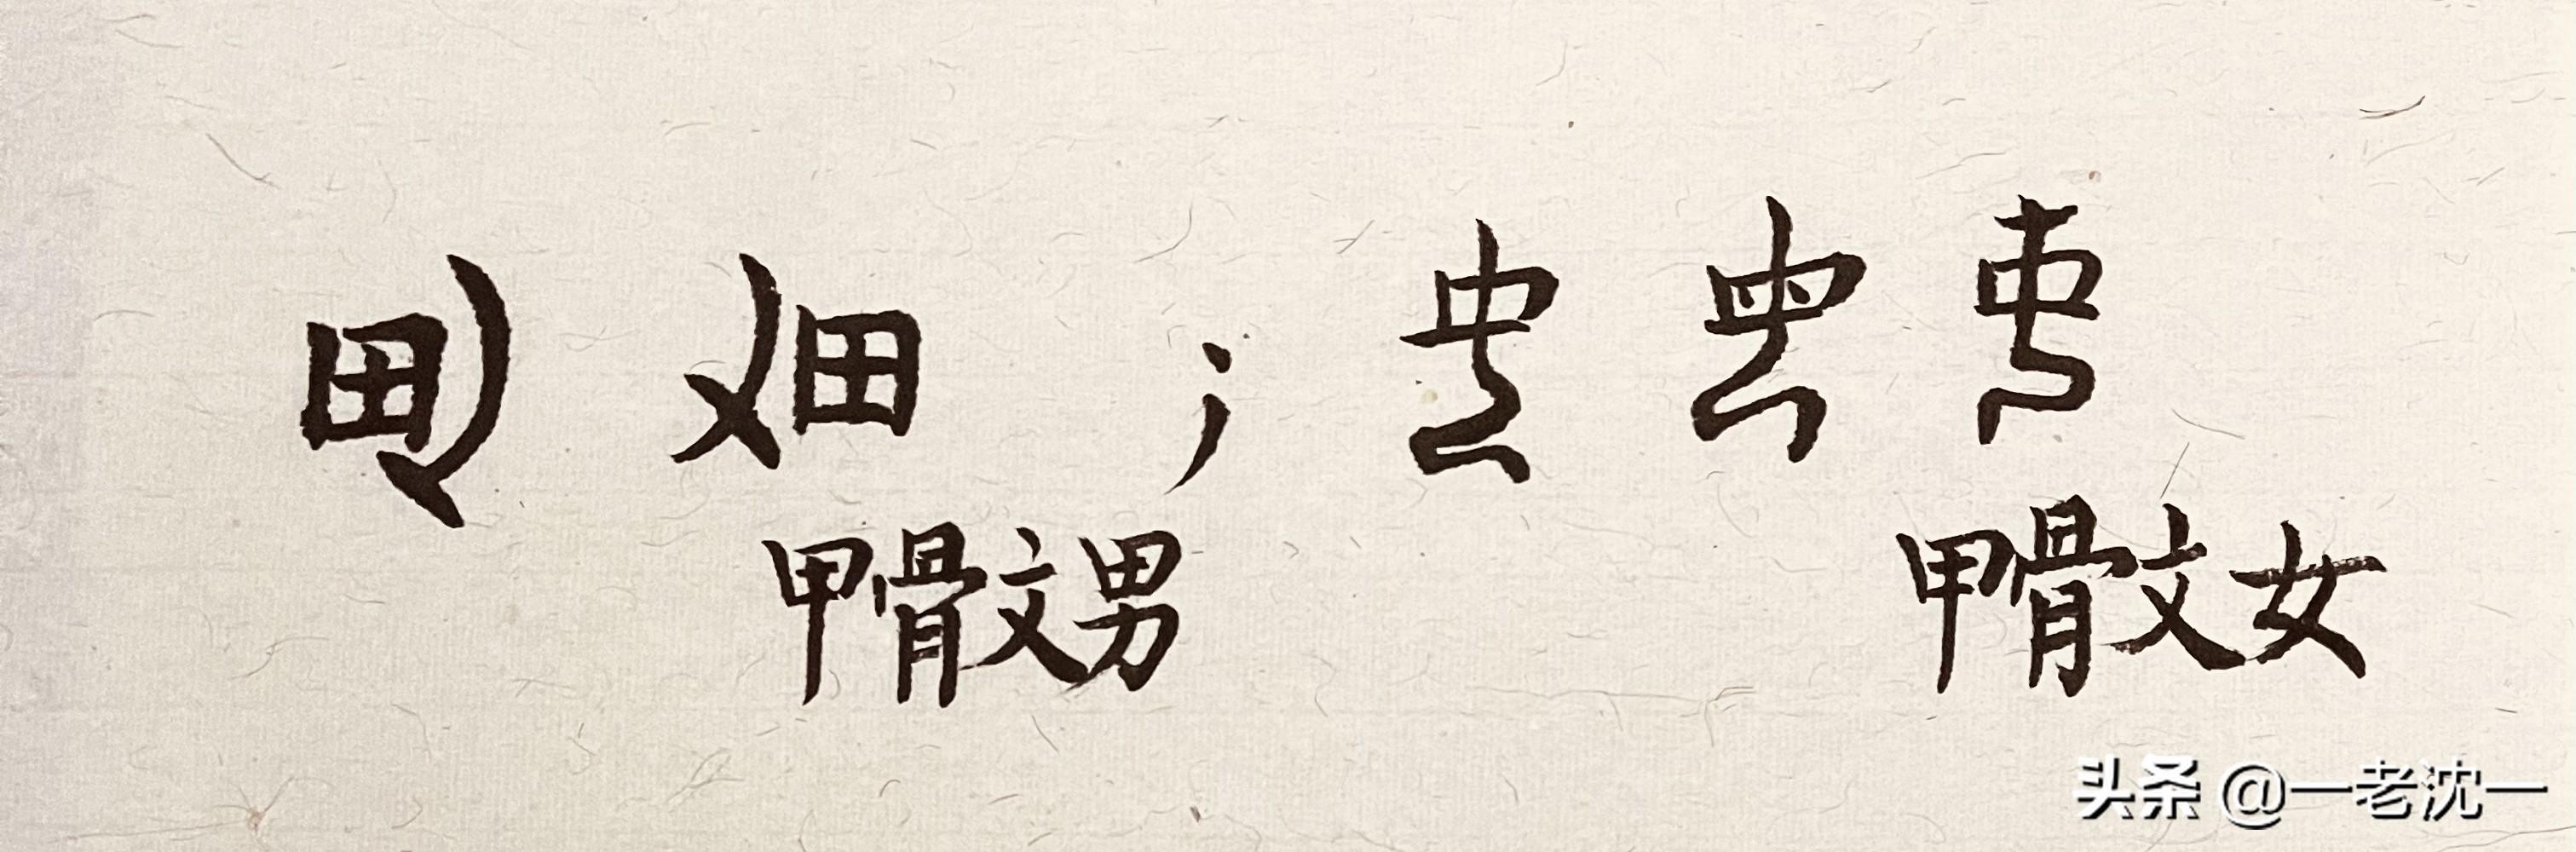 甲骨文男
甲骨文女
头条 @一老沈一